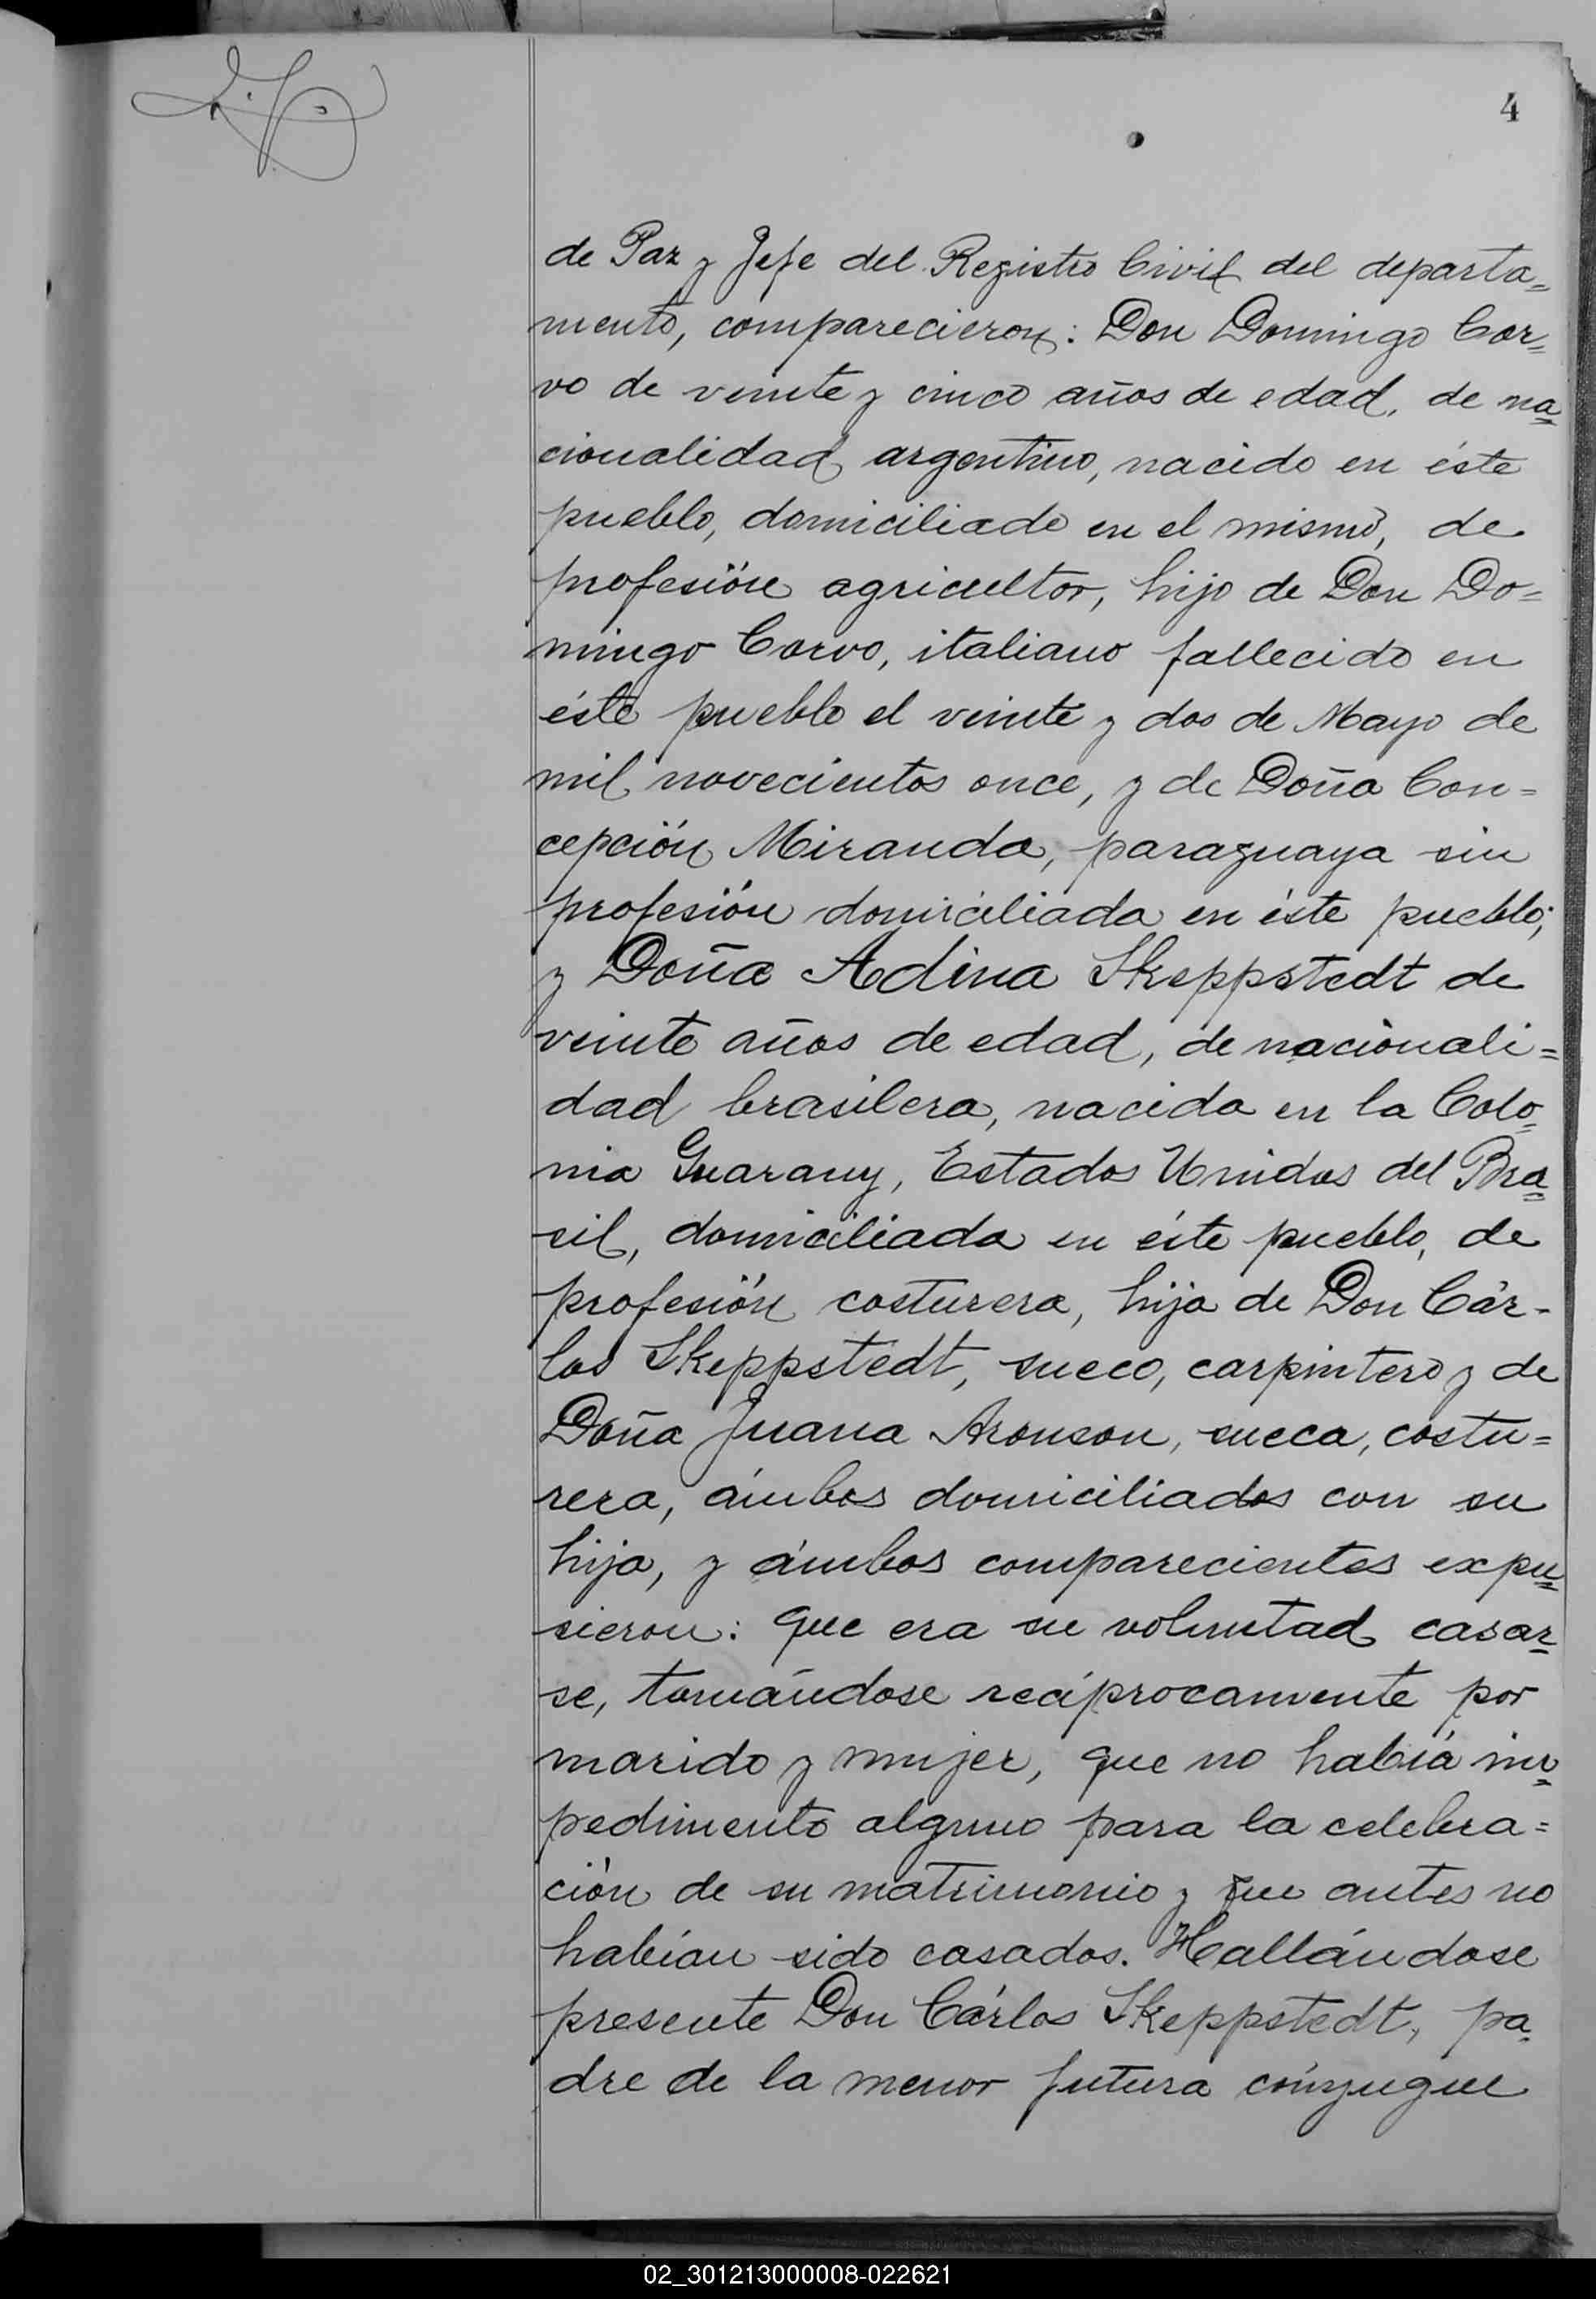 4
de Paz y Jefe del Registro Civil del departa=
mento, comparecieron: Don Domingo Cor=
vo de veinte y cinco años de edad, de na=
cionalidad argentino, nacido en éste
pueblo, domiciliado en el mismo, de
profesión agricultor, hijo de Don Do=
mingo Corvo, italiano fallecido en
éste pueblo el veinte y dos de Mayo de
mil novecientos once, y de Doña Con=
cepción Miranda, paraguaya sin
profesión domiciliada en éste pueblo;
y Doña Adina Skeppstedt de
veinte años de edad, de nacionali=
dad brasilera, nacida en la Colo=
nia Guarany, Estados Unidos del Bra=
sil, domiciliada en éste pueblo, de
profesión costurera, hija de Don Cár-
los Skeppstedt, sueco, carpintero y de
Doña Juana Aronson, sueca, costu=
rera, ámbos domiciliados con su
hija, y ámbos comparecientes expu=
sieron: que era su voluntad casar=
se, tomándose recíprocamente por
marido y mujer, que no había im=
pedimento alguno para la celebra=
ción de su matrimonio y que antes no
habían sido casados. Hallándose
presente Don Cárlos Skeppstedt, pa=
dre de la menor futura cónyugue
02_301213000008-022621